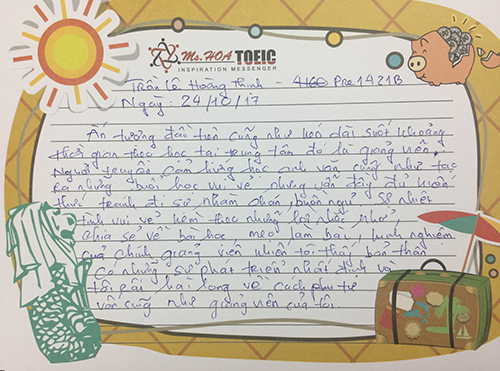 Ms. HOA TOEIC
INSPIRATION MESSENGER
Trần Lê Hoàng Thịnh - Pre 1421B
Ngày: 24/10/17
Ấn tượng đầu tiên cũng như kéo dài suốt khoảng
thời gian theo học tại trung tâm đó là giảng viên.
Người truyền cảm hứng học anh văn cũng như tạo
ra những buổi học vui vẻ nhưng vẫn đầy đủ kiến
thức tránh đi sự nhàm chán, buồn ngủ. Sự nhiệt
tình vui vẻ kèm theo những lời nhắc nhở
chia sẻ về bài học, mẹo làm bài, kinh nghiệm
của chính giảng viên khiến tôi thấy bản thân
có những sự phát triển nhất định và
tôi rất hài lòng về cách phục
vụ cũng như giảng viên của tôi.